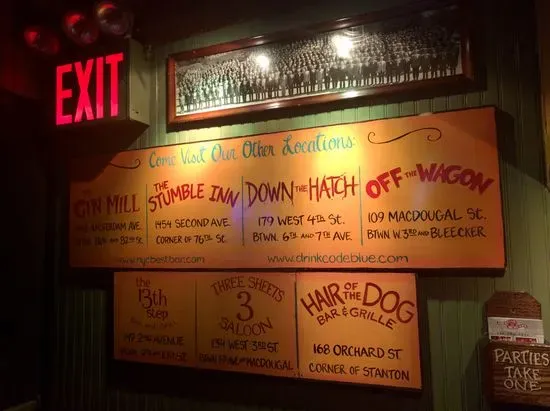 EXIT
Come Visit Our Other Locations:
THE
GIN MILL
AMSTERDAM AVE.
AND 82ND ST.
THE
STUMBLE INN
1454 SECOND AVE.
CORNER OF 76TH ST.
DOWN THE HATCH
179 WEST 4TH ST.
BTWN. 6TH AND 7TH AVE
OFF THE WAGON
109 MACDOUGAL ST.
BTWN W.3RD AND BLEECKER
www.nycbestbar.com
www.drinkcodeblue.com
the
13th
step
149 2ND AVENUE
THREE SHEETS
3
SALOON
134 WEST 3RD ST
AND MACDOUGAL
HAIR OF THE DOG
BAR & GRILLE
168 ORCHARD ST
CORNER OF STANTON
PARTIES
TAKE
ONE